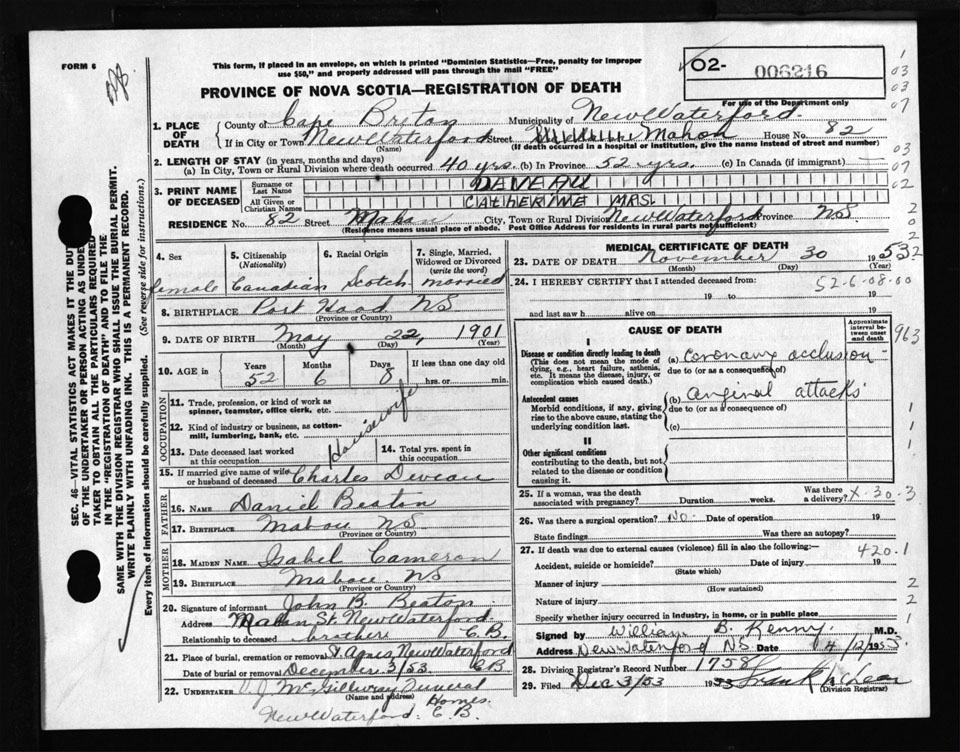 FORM 6
This form, if placed in an envelope, on which is printed "Dominion Statistics—Free, penalty for improper
use $50," and properly addressed will pass through the mail "FREE"
PROVINCE OF NOVA SCOTIA—REGISTRATION OF DEATH
02- 006216
For use of the Department only
1. PLACE OF DEATH County of Cape Breton Municipality of New Waterford
If in City or Town New Waterford Street Mahon House No. 82
(Name) (If death occurred in a hospital or institution, give the name instead of street and number)
2. LENGTH OF STAY (in years, months and days)
(a) In City, Town or Rural Division where death occurred 40 yrs. (b) In Province 52 yrs. (c) In Canada (if immigrant) —
3. PRINT NAME OF DECEASED Surname or Last Name DAVEAU
All Given or Christian Names CATHERINE MRS.
RESIDENCE No. 82 Street Mahon City, Town or Rural Division New Waterford Province NS.
(Residence means usual place of abode. Post Office Address for residents in rural parts not sufficient)
4. Sex female
5. Citizenship (Nationality) Canadian
6. Racial Origin Scotch
7. Single, Married, Widowed or Divorced (write the word) married
8. BIRTHPLACE Port Hood NS
(Province or Country)
9. DATE OF BIRTH May 22, 1901
(Month) (Day) (Year)
10. AGE in Years 52 Months 6 Days 8 If less than one day old
hrs. or min.
OCCUPATION
11. Trade, profession, or kind of work as
spinner, teamster, office clerk, etc.
Housewife
12. Kind of industry or business, as cotton-
mill, lumbering, bank, etc.
13. Date deceased last worked
at this occupation
14. Total yrs. spent in
this occupation
15. If married give name of wife
or husband of deceased Charles Deveau
FATHER
16. NAME Daniel Beaton
17. BIRTHPLACE Mabou NS
(Province or Country)
MOTHER
18. MAIDEN NAME Isabel Cameron
19. BIRTHPLACE Mabou NS
(Province or Country)
20. Signature of informant John B. Beaton
Address Mahon St. New Waterford
Relationship to deceased brother C.B.
21. Place of burial, cremation or removal St. Agnes, New Waterford
Date of burial or removal December 3/53 C.B.
22. UNDERTAKER McGillivray Funeral
(Name and address) Homes.
New Waterford. C.B.
MEDICAL CERTIFICATE OF DEATH
23. DATE OF DEATH November 30 1953
(Month) (Day) (Year)
24. I HEREBY CERTIFY that I attended deceased from:
52-6-08-00
19 to 19
and last saw h alive on 19
CAUSE OF DEATH
Approximate interval between onset and death
I
Disease or condition directly leading to death
(This does not mean the mode of dying, e.g., heart failure, asthenia, etc. It means the disease, injury, or complication which caused death.)
(a) coronary occlusion
due to (or as a consequence of)
Antecedent causes
Morbid conditions, if any, giving rise to the above cause, stating the underlying condition last.
(b) anginal attacks
due to (or as a consequence of)
(c)
II
Other significant conditions
contributing to the death, but not related to the disease or condition causing it.
25. If a woman, was the death
associated with pregnancy? Duration weeks. Was there a delivery?
X-30-3
26. Was there a surgical operation? No. Date of operation 19
State findings Was there an autopsy?
27. If death was due to external causes (violence) fill in also the following:—
420.1
Accident, suicide or homicide? Date of injury 19
(State which)
Manner of injury
(How sustained)
Nature of injury
Specify whether injury occurred in industry, in home, or in public place
Signed by William B. Kenny M.D.
Address New Waterford NS Date 4/12/1953
28. Division Registrar's Record Number 1758
29. Filed Dec 3/53 1953
(Division Registrar)
SEC. 46—VITAL STATISTICS ACT MAKES IT THE DUTY
OF THE UNDERTAKER OR PERSON ACTING AS UNDER
TAKER TO OBTAIN ALL THE PARTICULARS REQUIRED
IN THE "REGISTRATION OF DEATH" AND TO FILE THE
SAME WITH THE DIVISION REGISTRAR WHO SHALL ISSUE THE BURIAL PERMIT.
WRITE PLAINLY WITH UNFADING INK. THIS IS A PERMANENT RECORD.
Every item of information should be carefully supplied. (See reverse side for instructions.)
1
03
03
07
03
07
02
2
0
2
2
963
1
1
2
2
1